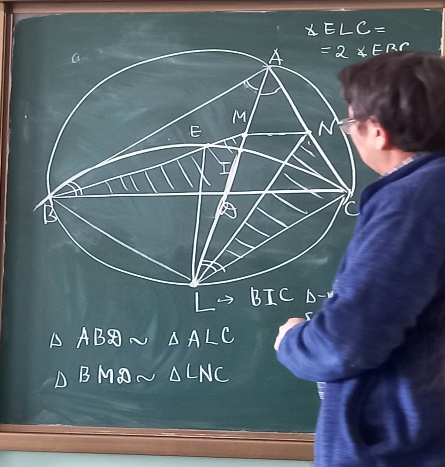 ∡ELC =
= 2 ∡EBC
A
M
N
E
I
B
D
C
L → BIC
Δ ABD ~ Δ ALC
Δ BMD ~ Δ LNC